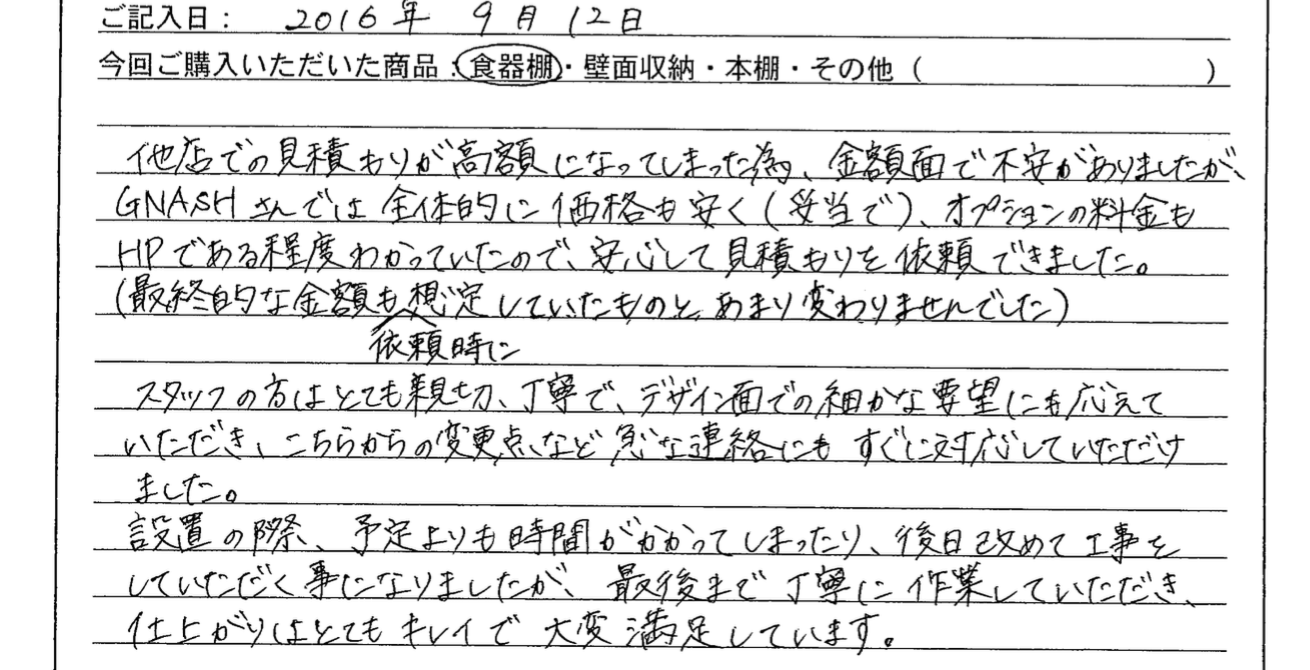 ご記入日： 2016年 9月 12日
今回ご購入いただいた商品：食器棚・壁面収納・本棚・その他（　　　）
他店での見積もりが高額になってしまった為、金額面で不安がありましたが、
GNASHさんでは全体的に価格も安く(妥当で)、オプションの料金も
HPである程度わかっていたので、安心して見積もりを依頼できました。
(最終的な金額も想定していたものと、あまり変わりませんでした)
依頼時に
スタッフの方はとても親切、丁寧で、デザイン面での細かな要望にも応えて
いただき、こちらからの変更点など急な連絡にもすぐに対応していただけ
ました。
設置の際、予定よりも時間がかかってしまったり、後日改めて工事を
していただく事になりましたが、最後まで丁寧に作業していただき、
仕上がりはとてもキレイで大変満足しています。